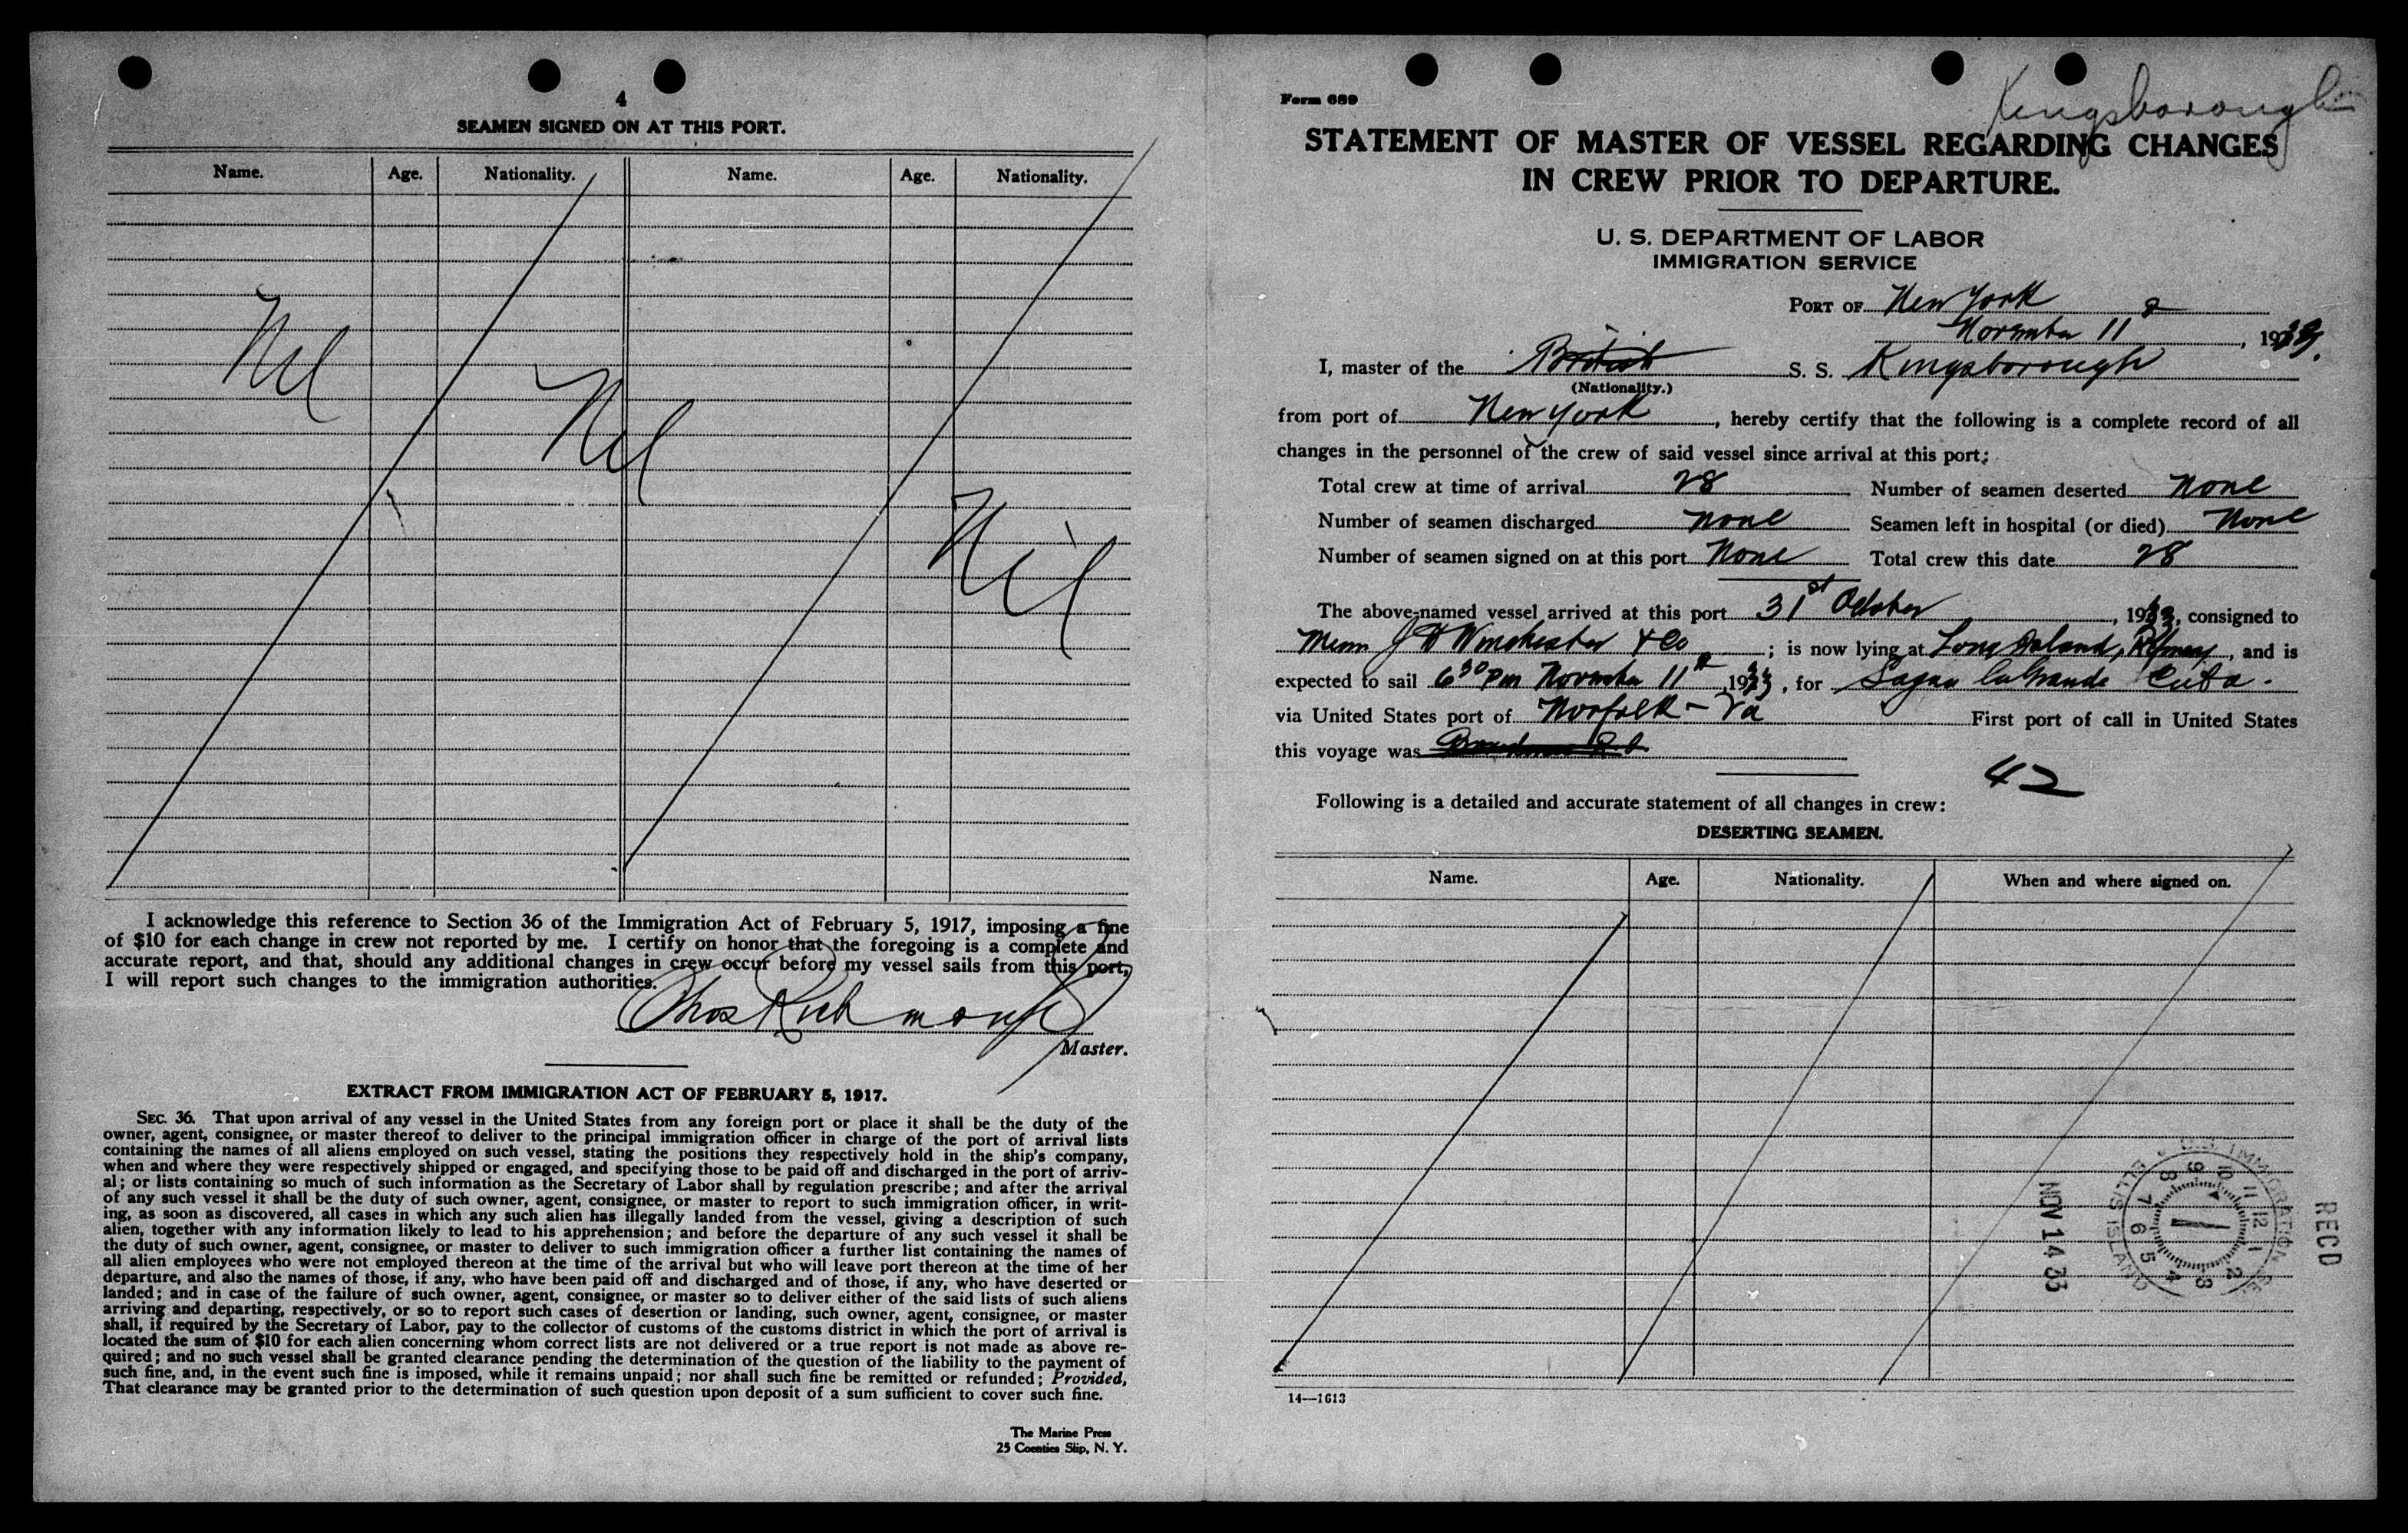 4
SEAMEN SIGNED ON AT THIS PORT.
Name. Age. Nationality. Name. Age. Nationality.
Nil
Nil
Nil
I acknowledge this reference to Section 36 of the Immigration Act of February 5, 1917, imposing a fine
of $10 for each change in crew not reported by me. I certify on honor that the foregoing is a complete and
accurate report, and that, should any additional changes in crew occur before my vessel sails from this port,
I will report such changes to the immigration authorities.
Chas Richmond
Master.
EXTRACT FROM IMMIGRATION ACT OF FEBRUARY 5, 1917.
SEC. 36. That upon arrival of any vessel in the United States from any foreign port or place it shall be the duty of the
owner, agent, consignee, or master thereof to deliver to the principal immigration officer in charge of the port of arrival lists
containing the names of all aliens employed on such vessel, stating the positions they respectively hold in the ship's company,
when and where they were respectively shipped or engaged, and specifying those to be paid off and discharged in the port of arriv-
al; or lists containing so much of such information as the Secretary of Labor shall by regulation prescribe; and after the arrival
of any such vessel it shall be the duty of such owner, agent, consignee, or master to report to such immigration officer, in writ-
ing, as soon as discovered, all cases in which any such alien has illegally landed from the vessel, giving a description of such
alien, together with any information likely to lead to his apprehension; and before the departure of any such vessel it shall be
the duty of such owner, agent, consignee, or master to deliver to such immigration officer a further list containing the names of
all alien employees who were not employed thereon at the time of the arrival but who will leave port thereon at the time of her
departure, and also the names of those, if any, who have been paid off and discharged and of those, if any, who have deserted or
landed; and in case of the failure of such owner, agent, consignee, or master so to deliver either of the said lists of such aliens
arriving and departing, respectively, or so to report such cases of desertion or landing, such owner, agent, consignee, or master
shall, if required by the Secretary of Labor, pay to the collector of customs of the customs district in which the port of arrival is
located the sum of $10 for each alien concerning whom correct lists are not delivered or a true report is not made as above re-
quired; and no such vessel shall be granted clearance pending the determination of the question of the liability to the payment of
such fine, and, in the event such fine is imposed, while it remains unpaid; nor shall such fine be remitted or refunded; Provided,
That clearance may be granted prior to the determination of such question upon deposit of a sum sufficient to cover such fine.
The Marine Press
25 Coenties Slip, N. Y.
Kingsborough
Form 689
STATEMENT OF MASTER OF VESSEL REGARDING CHANGES
IN CREW PRIOR TO DEPARTURE.
U. S. DEPARTMENT OF LABOR
IMMIGRATION SERVICE
PORT OF New York
November 11, 1933.
I, master of the British S. S. Kingsborough
(Nationality.)
from port of New York, hereby certify that the following is a complete record of all
changes in the personnel of the crew of said vessel since arrival at this port:
Total crew at time of arrival 28 Number of seamen deserted None
Number of seamen discharged none Seamen left in hospital (or died) None
Number of seamen signed on at this port None Total crew this date 28
The above-named vessel arrived at this port 31st October, 1933, consigned to
Messrs J H Winchester & Co; is now lying at Long Island, Refinery, and is
expected to sail 6 30 Pm November 11 1933, for Sagua La Grande Cuba.
via United States port of Norfolk - Va First port of call in United States
this voyage was
42
Following is a detailed and accurate statement of all changes in crew:
DESERTING SEAMEN.
Name. Age. Nationality. When and where signed on.
RECD
U.S. IMMIGRATION
ELLIS ISLAND
1 2 3 4 5 6 7 8 9 10 11 12
NOV 14 33
14—1613